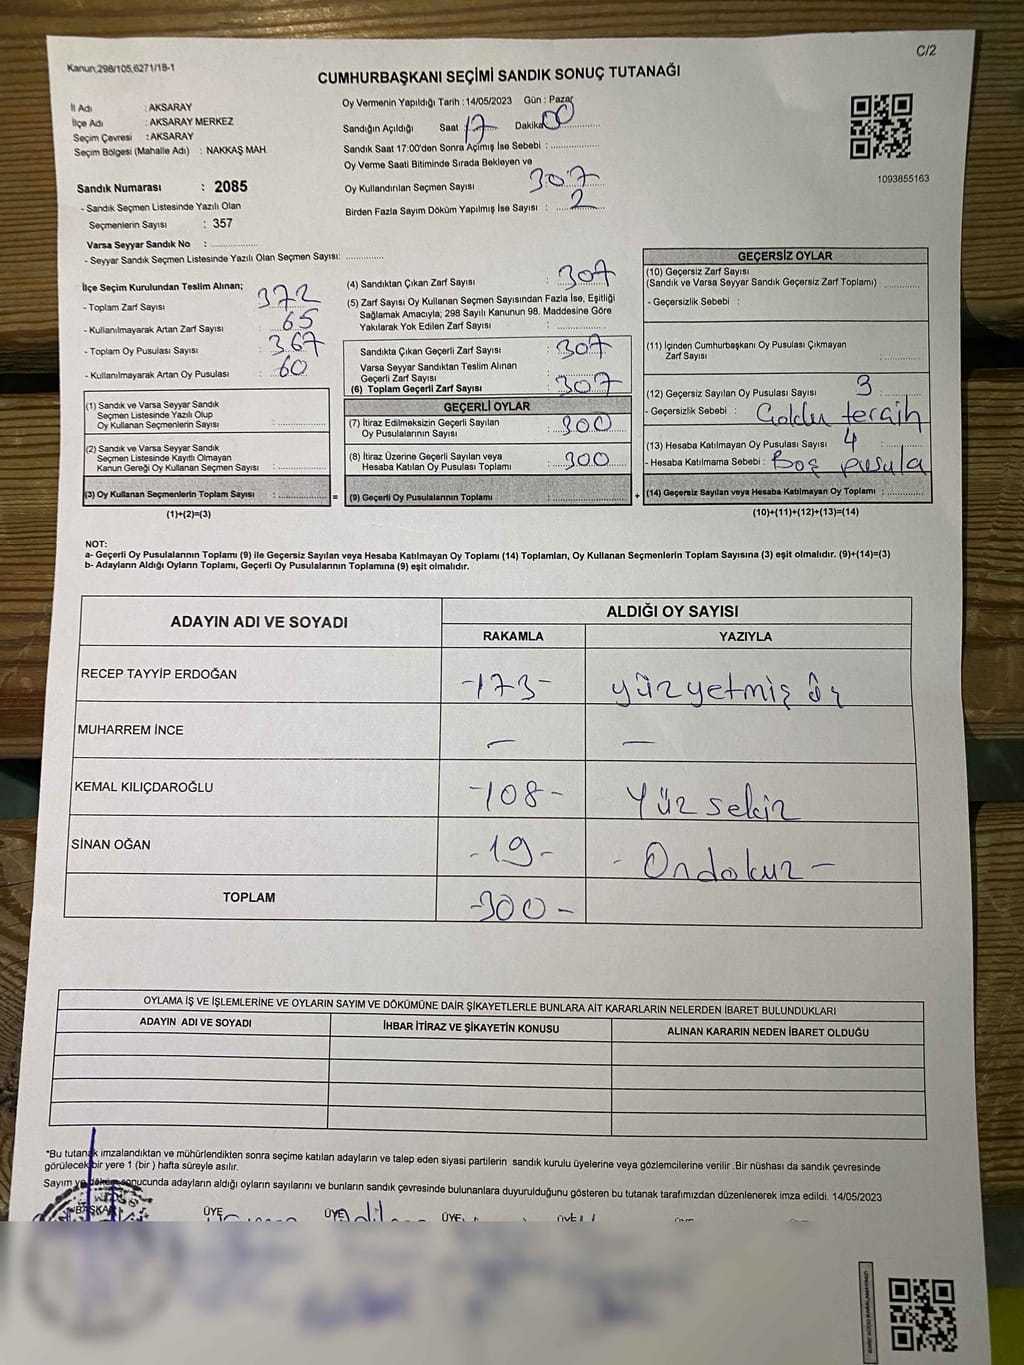 Kanun;298/105;6271/18-1
C/2
CUMHURBAŞKANI SEÇİMİ SANDIK SONUÇ TUTANAĞI
İl Adı : AKSARAY
İlçe Adı : AKSARAY MERKEZ
Seçim Çevresi : AKSARAY
Seçim Bölgesi (Mahalle Adı) : NAKKAŞ MAH.
Sandık Numarası : 2085
- Sandık Seçmen Listesinde Yazılı Olan
Seçmenlerin Sayısı : 357
Varsa Seyyar Sandık No : ..............
- Seyyar Sandık Seçmen Listesinde Yazılı Olan Seçmen Sayısı: ............
Oy Vermenin Yapıldığı Tarih : 14/05/2023 Gün : Pazar
Sandığın Açıldığı Saat 17 Dakika 00
Sandık Saat 17:00'den Sonra Açımış İse Sebebi : ..............
Oy Verme Saati Bitiminde Sırada Bekleyen ve
Oy Kullandırılan Seçmen Sayısı 307
Birden Fazla Sayım Döküm Yapılmış İse Sayısı : 2
1093855163
İlçe Seçim Kurulundan Teslim Alınan;
- Toplam Zarf Sayısı : 372
- Kullanılmayarak Artan Zarf Sayısı : 65
- Toplam Oy Pusulası Sayısı : 367
- Kullanılmayarak Artan Oy Pusulası : 60
(1) Sandık ve Varsa Seyyar Sandık
Seçmen Listesinde Yazılı Olup
Oy Kullanan Seçmenlerin Sayısı : ..............
(2) Sandık ve Varsa Seyyar Sandık
Seçmen Listesinde Kayıtlı Olmayan
Kanun Gereği Oy Kullanan Seçmen Sayısı : ..............
(3) Oy Kullanan Seçmenlerin Toplam Sayısı : .............. =
(1)+(2)=(3)
(4) Sandıktan Çıkan Zarf Sayısı : 307
(5) Zarf Sayısı Oy Kullanan Seçmen Sayısından Fazla İse, Eşitliği
Sağlamak Amacıyla; 298 Sayılı Kanunun 98. Maddesine Göre
Yakılarak Yok Edilen Zarf Sayısı : ..............
Sandıkta Çıkan Geçerli Zarf Sayısı : 307
Varsa Seyyar Sandıktan Teslim Alınan
Geçerli Zarf Sayısı :
(6) Toplam Geçerli Zarf Sayısı : 307
GEÇERLİ OYLAR
(7) İtiraz Edilmeksizin Geçerli Sayılan
Oy Pusulalarının Sayısı : 300
(8) İtiraz Üzerine Geçerli Sayılan veya
Hesaba Katılan Oy Pusulası Toplamı : 300
(9) Geçerli Oy Pusulalarının Toplamı : .............. +
GEÇERSİZ OYLAR
(10) Geçersiz Zarf Sayısı
(Sandık ve Varsa Seyyar Sandık Geçersiz Zarf Toplamı) ............
- Geçersizlik Sebebi :
(11) İçinden Cumhurbaşkanı Oy Pusulası Çıkmayan
Zarf Sayısı : ............
(12) Geçersiz Sayılan Oy Pusulası Sayısı 3
- Geçersizlik Sebebi : tercih
(13) Hesaba Katılmayan Oy Pusulası Sayısı 4
- Hesaba Katılmama Sebebi : Boş pusula
(14) Geçersiz Sayılan veya Hesaba Katılmayan Oy Toplamı : ............
(10)+(11)+(12)+(13)=(14)
NOT:
a- Geçerli Oy Pusulalarının Toplamı (9) ile Geçersiz Sayılan veya Hesaba Katılmayan Oy Toplamı (14) Toplamları, Oy Kullanan Seçmenlerin Toplam Sayısına (3) eşit olmalıdır. (9)+(14)=(3)
b- Adayların Aldığı Oyların Toplamı, Geçerli Oy Pusulalarının Toplamına (9) eşit olmalıdır.
ADAYIN ADI VE SOYADI ALDIĞI OY SAYISI
RAKAMLA YAZIYLA
RECEP TAYYİP ERDOĞAN -173- yüzyetmiş üç
MUHARREM İNCE - -
KEMAL KILIÇDAROĞLU -108- Yüz sekiz
SİNAN OĞAN -19- - Ondokuz -
TOPLAM -300-
OYLAMA İŞ VE İŞLEMLERİNE VE OYLARIN SAYIM VE DÖKÜMÜNE DAİR ŞİKAYETLERLE BUNLARA AİT KARARLARIN NELERDEN İBARET BULUNDUKLARI
ADAYIN ADI VE SOYADI İHBAR İTİRAZ VE ŞİKAYETİN KONUSU ALINAN KARARIN NEDEN İBARET OLDUĞU
*Bu tutanak imzalandıktan ve mühürlendikten sonra seçime katılan adayların ve talep eden siyasi partilerin sandık kurulu üyelerine veya gözlemcilerine verilir .Bir nüshası da sandık çevresinde
görülecek bir yere 1 (bir ) hafta süreyle asılır.
Sayım ve döküm sonucunda adayların aldığı oyların sayılarını ve bunların sandık çevresinde bulunanlara duyurulduğunu gösteren bu tutanak tarafımızdan düzenlenerek imza edildi. 14/05/2023
BAŞKAN ÜYE ÜYE ÜYE